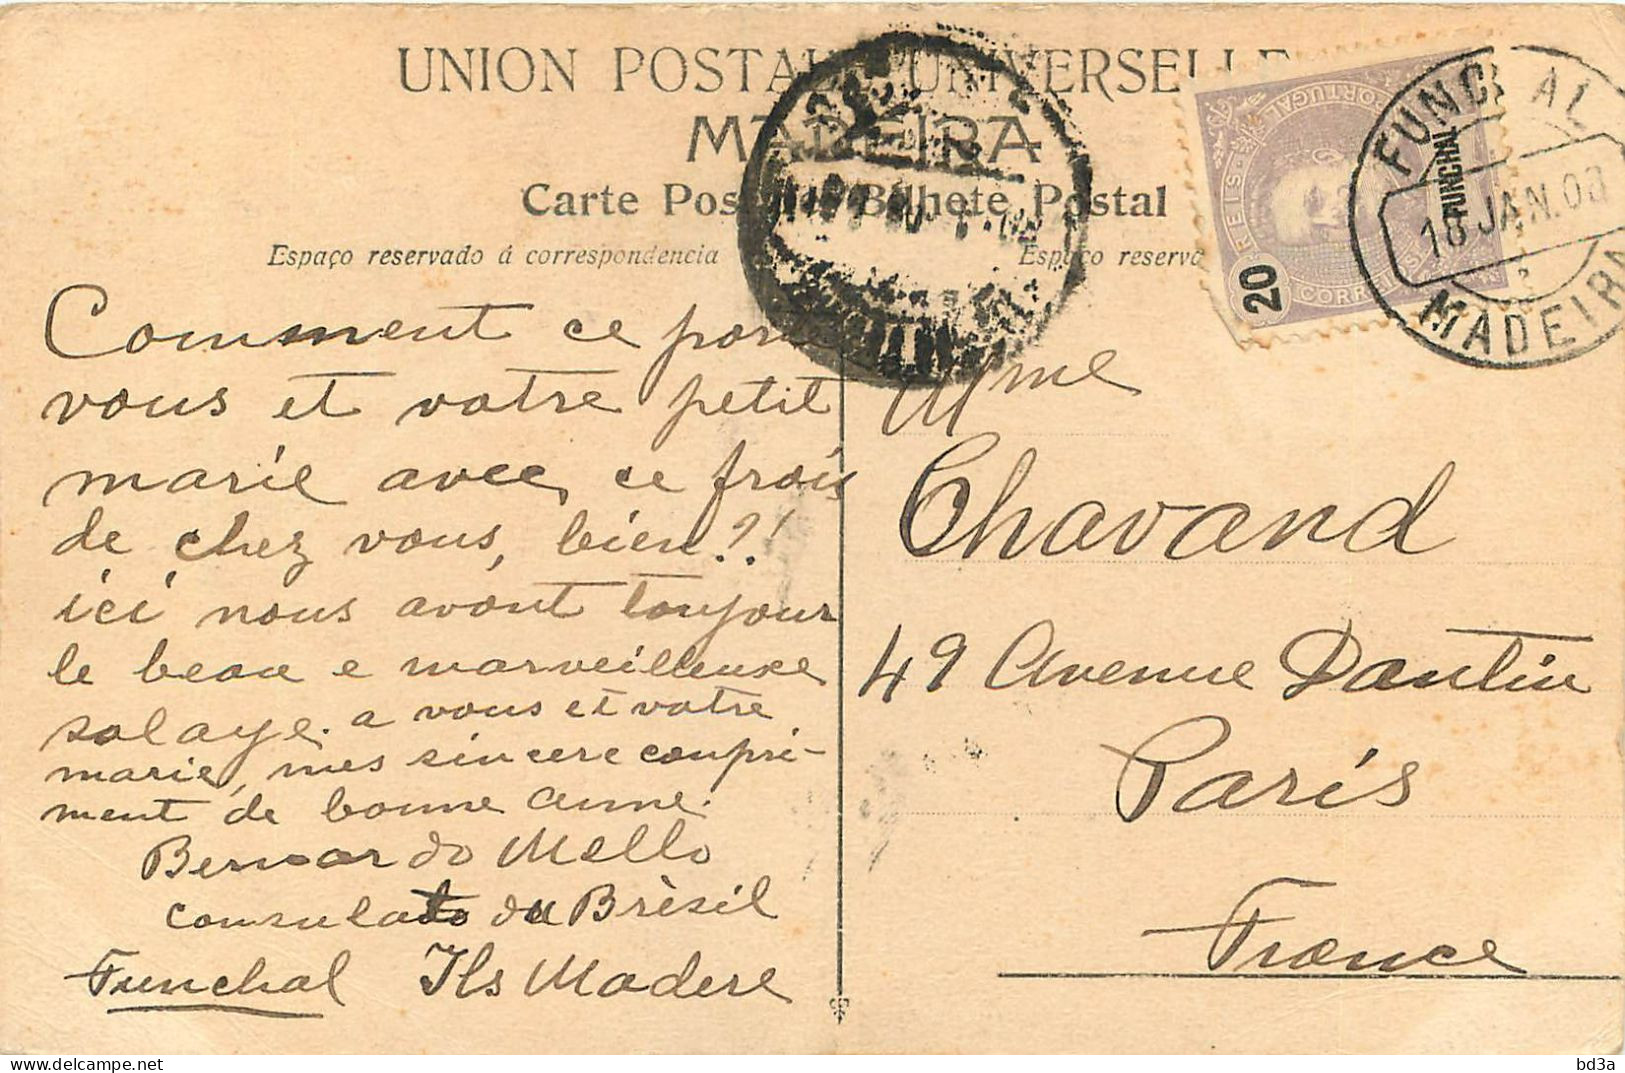 UNION POSTALE UNIVERSELLE
MADEIRA
Carte Postale Bilhete Postal
Espaço reservado á correspondencia
Espaço reserva
PORTUGAL
REIS
20
FUNCHAL
CORREIOS
FUNCHAL
18 JAN. 08
MADEIRA
Comment ce porte
vous et votre petit
marie avec ce frois
de chez vous, bien?!
ici nous avont toujour
le beau e marveilleuse
solaye. a vous et votre
marie, mes sincere conpri-
ment de bonne anne.
Bernardo Mello
consulato du Brèsil
Funchal Ils Madere
Mme
Chavand
49 Avenue Dantin
Paris
France
bd3a